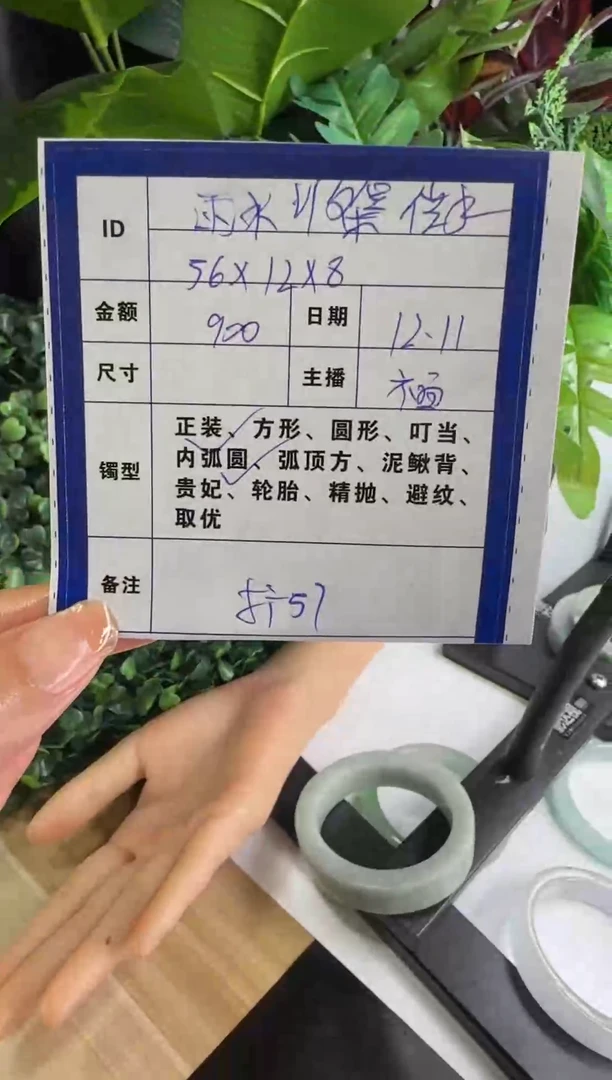 ID
雨水
56×12×8
金额 900 日期 12.11
尺寸 主播
镯型 正装、方形、圆形、叮当、
内弧圆、弧顶方、泥鳅背、
贵妃、轮胎、精抛、避纹、
取优
备注 57